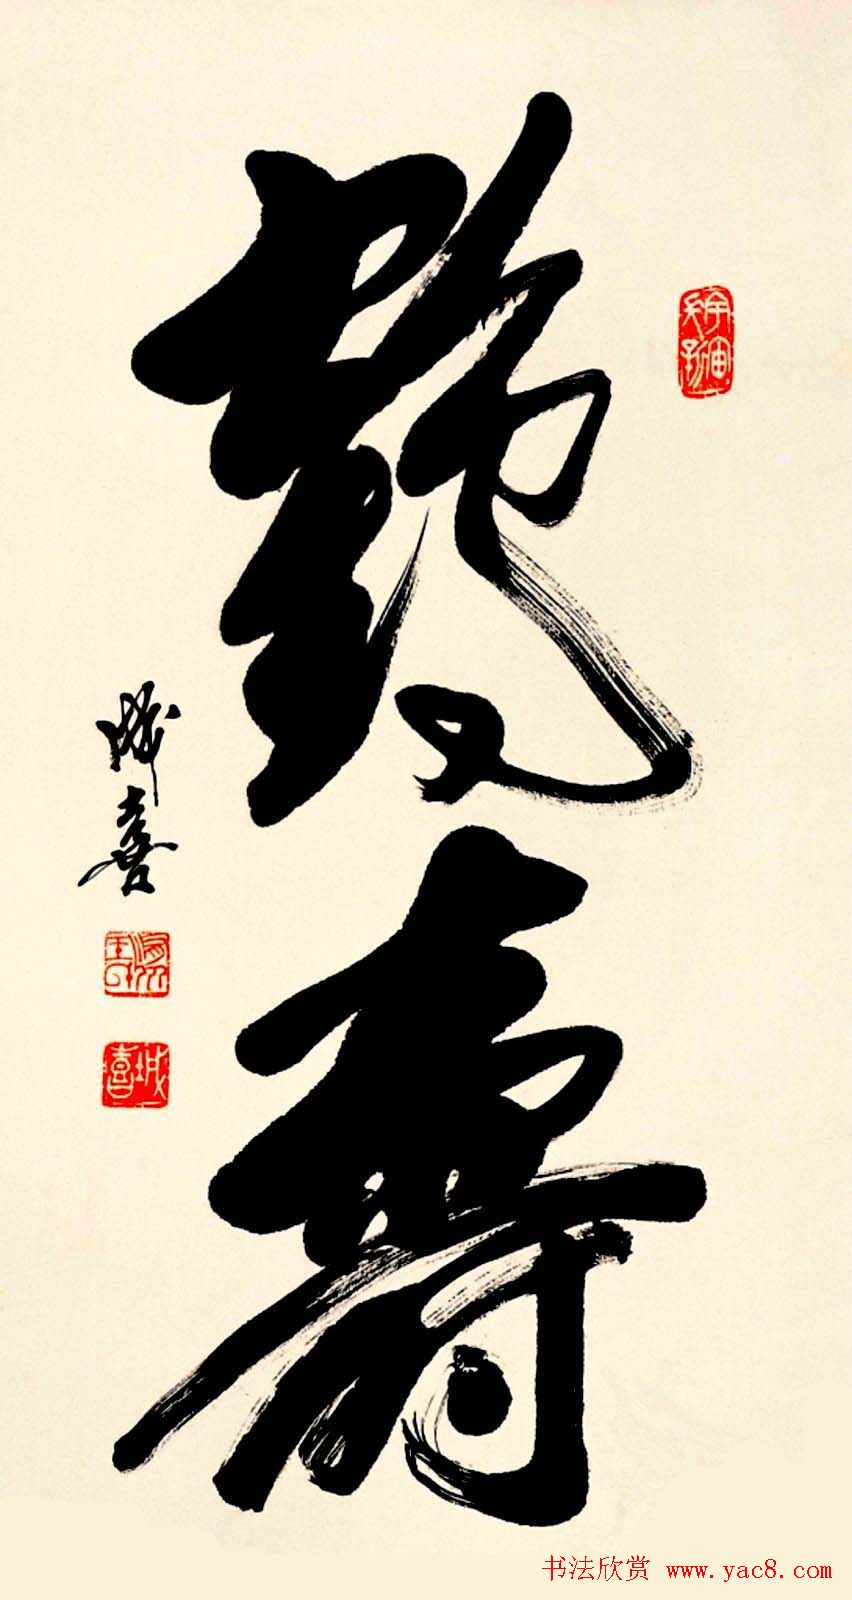 鹤寿
城喜
城喜
书法欣赏 www.yac8.com